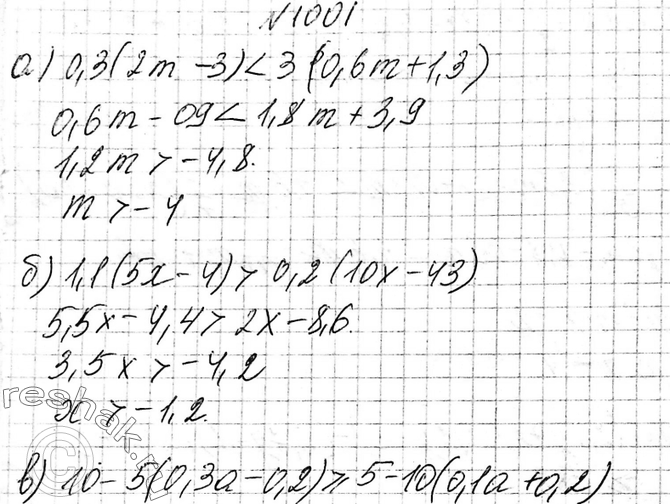 №1001
а) 0,3(2m-3)<3(0,6m+1,3)
0,6m-09<1,8m+3,9
1,2m>-4,8.
m>-4
б) 1,1(5x-4)>0,2(10x-43)
5,5x-4,4>2x-8,6.
3,5x>-4,2
x>-1,2.
reshak.ru
в) 10-5(0,3a-0,2)⩾5-10(0,1a+0,2)